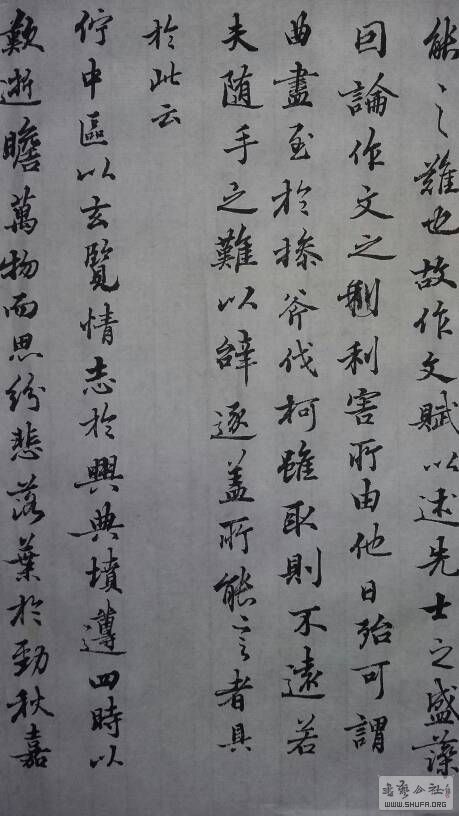 能之難也故作文賦以述先士之盛藻
因論作文之利害所由他日殆可謂
曲盡至於操斧伐柯雖取則不遠若
夫隨手之難以辭逐蓋所能言者具
於此云
佇中區以玄覽情志於興典墳遵四時以
歎逝瞻萬物而思紛悲落葉於勁秋嘉
書藝公社
WWW.SHUFA.ORG